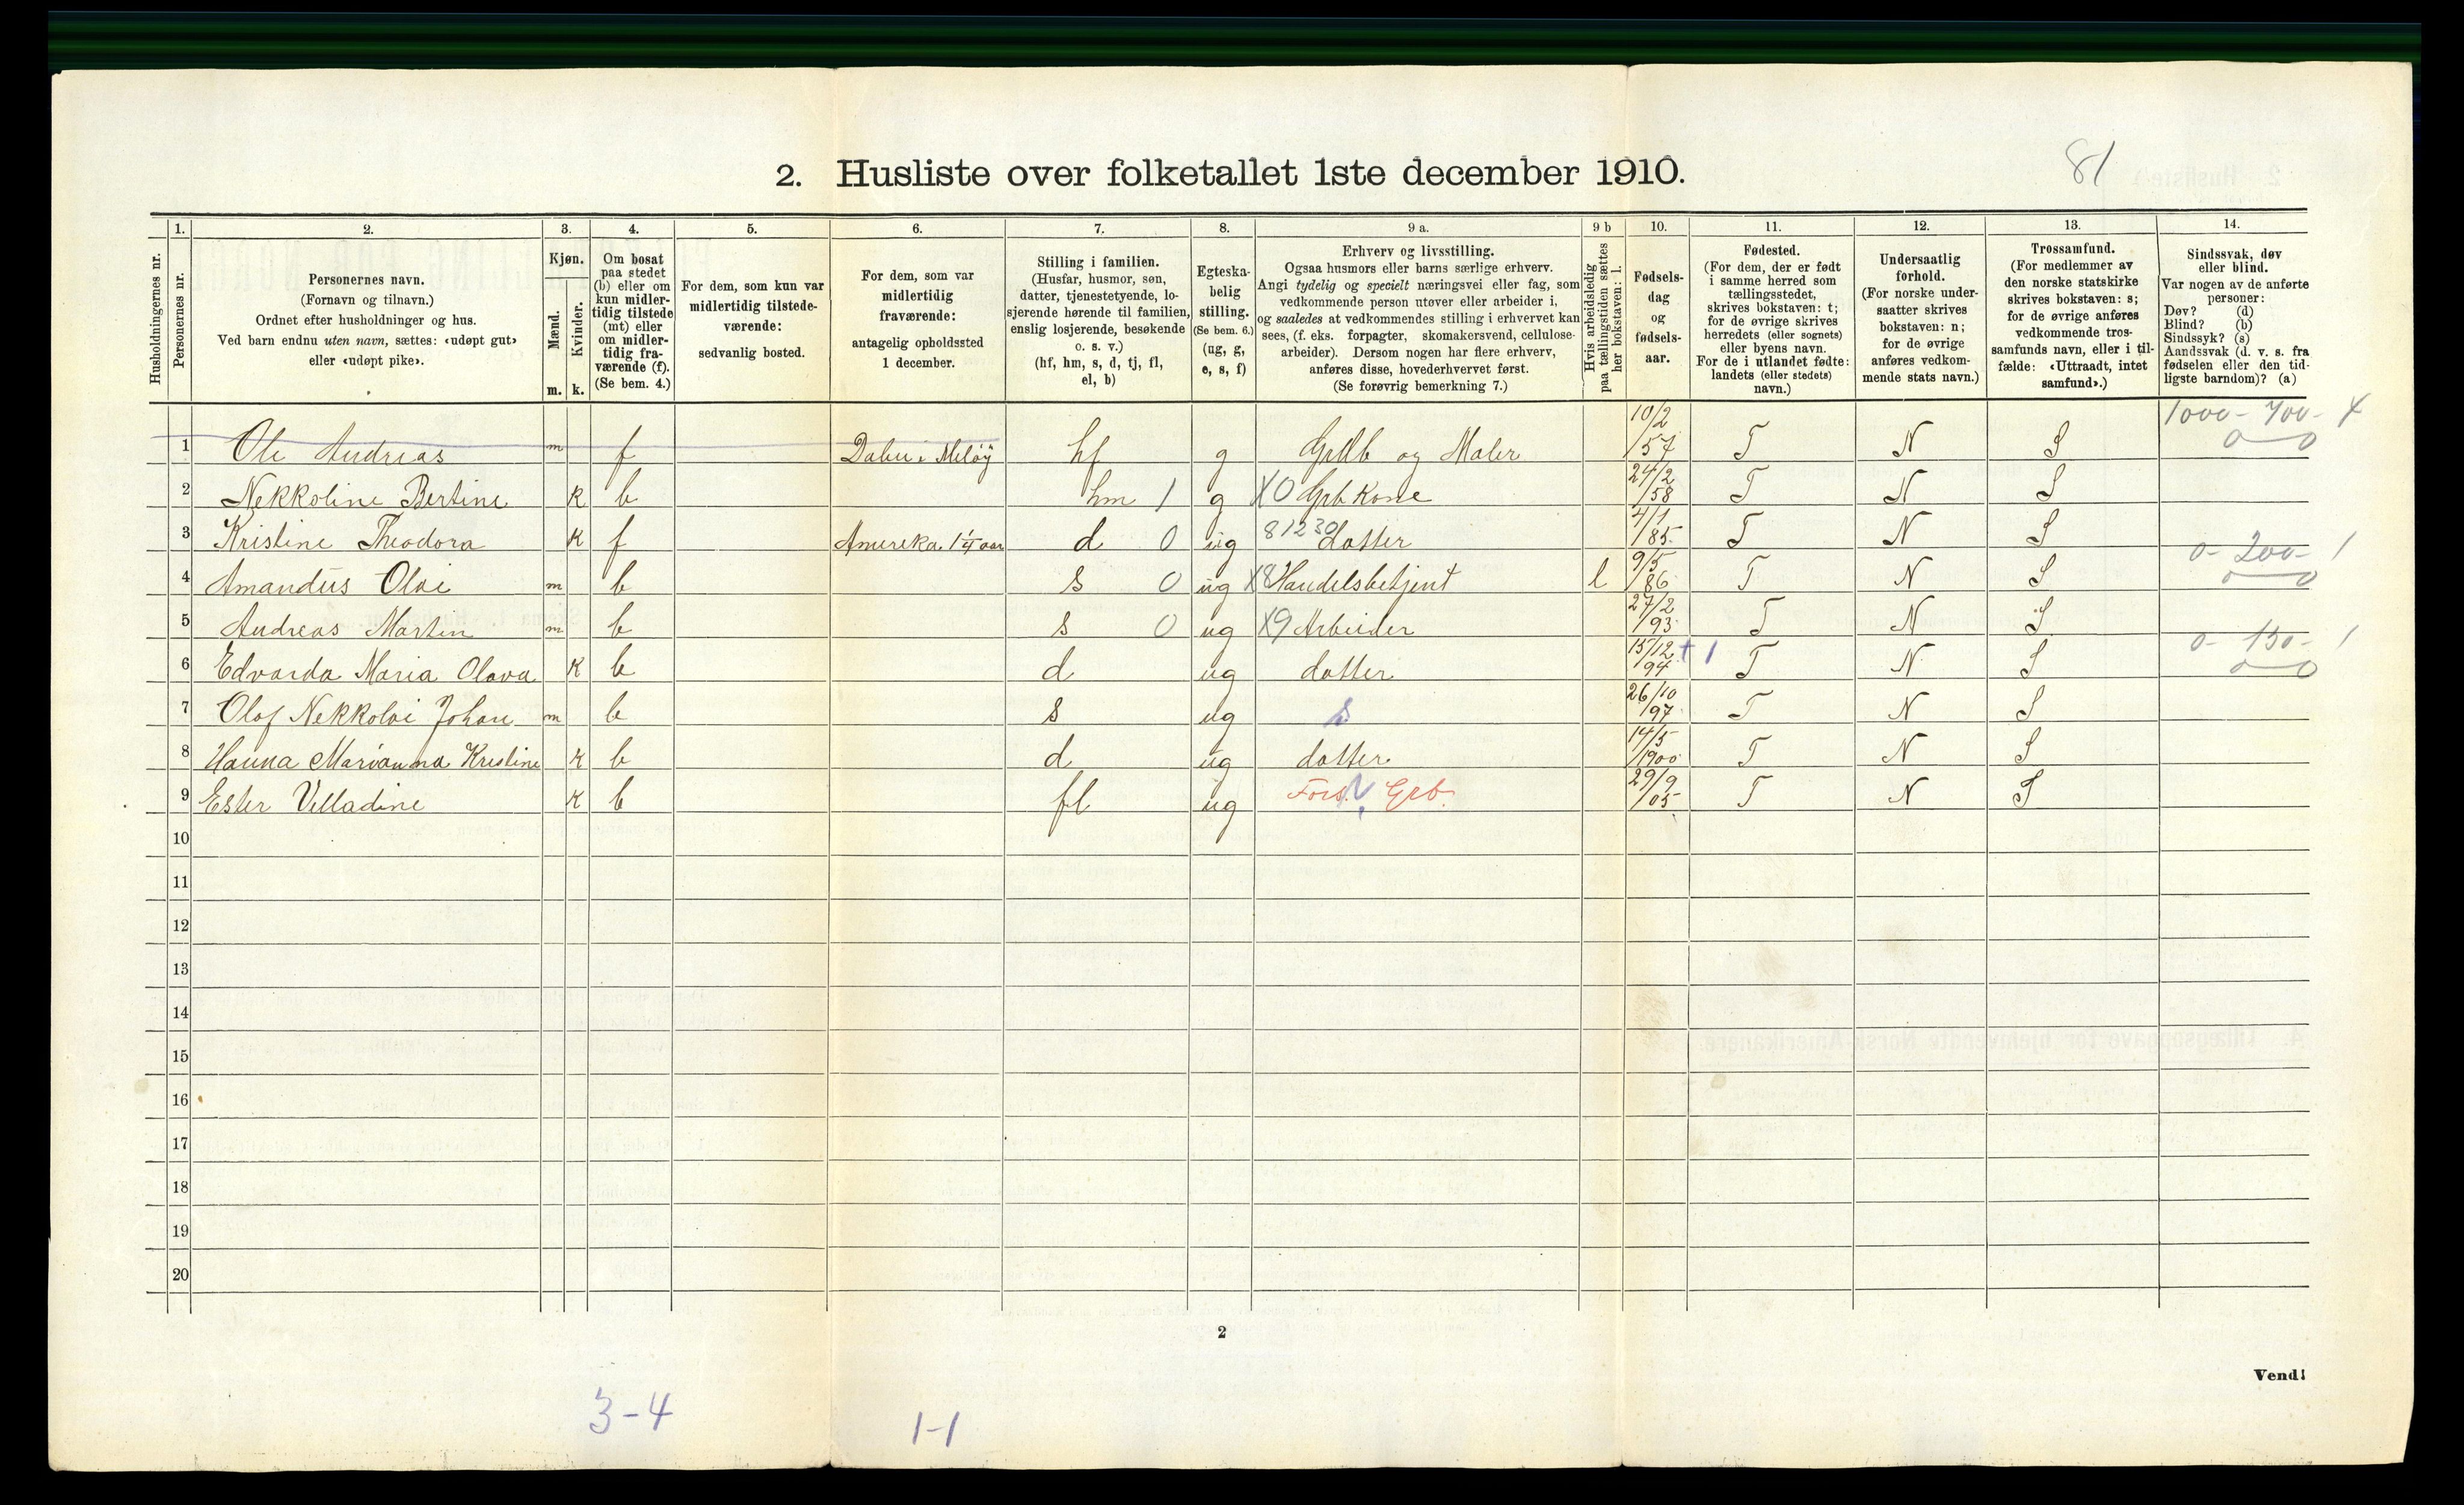 81
2. Husliste over folketallet 1ste december 1910.
Husholdningernes nr.
1. Personernes nr.
2. Personernes navn. (Fornavn og tilnavn.) Ordnet efter husholdninger og hus. Ved barn endnu uten navn, sættes: «udøpt gut» eller «udøpt pike».
3. Kjøn. Mænd. m. Kvinder. k.
4. Om bosat paa stedet (b) eller om kun midlertidig tilstede (mt) eller om midlertidig fraværende (f). (Se bem. 4.)
5. For dem, som kun var midlertidig tilstedeværende: sedvanlig bosted.
6. For dem, som var midlertidig fraværende: antagelig opholdssted 1 december.
7. Stilling i familien. (Husfar, husmor, søn, datter, tjenestetyende, losjerende hørende til familien, enslig losjerende, besøkende o. s. v.) (hf, hm, s, d, tj, fl, el, b)
8. Egteskabelig stilling. (Se bem. 6.) (ug, g, e, s, f)
9 a. Erhverv og livsstilling. Ogsaa husmors eller barns særlige erhverv. Angi tydelig og specielt næringsvei eller fag, som vedkommende person utøver eller arbeider i, og saaledes at vedkommendes stilling i erhvervet kan sees, (f. eks. forpagter, skomakersvend, cellulosearbeider). Dersom nogen har flere erhverv, anføres disse, hovederhvervet først. (Se forøvrig bemerkning 7.)
9 b Hvis arbeidsledig paa tællingstiden sættes her bokstaven: l.
10. Fødselsdag og fødselsaar.
11. Fødested. (For dem, der er født i samme herred som tællingsstedet, skrives bokstaven: t; for de øvrige skrives herredets (eller sognets) eller byens navn. For de i utlandet fødte: landets (eller stedets) navn.)
12. Undersaatlig forhold. (For norske undersaatter skrives bokstaven: n; for de øvrige anføres vedkommende stats navn.)
13. Trossamfund. (For medlemmer av den norske statskirke skrives bokstaven: s; for de øvrige anføres vedkommende trossamfunds navn, eller i tilfælde: «Uttraadt, intet samfund».)
14. Sindssvak, døv eller blind. Var nogen av de anførte personer: Døv? (d) Blind? (b) Sindssyk? (s) Aandssvak (d. v. s. fra fødselen eller den tidligste barndom)? (a)
1 Ole Andreas m f Dalen i Meløy hf g Grdb og Maler 10/2/57 T N S 1000-700-4 0 0
2 Nekkoline Bertine K b hm 1 g X0 Grb Kone 24/2/58 T N S
3 Kristine Theodora K f Amereka 1¼ aar d 0 ug 81230 datter 4/1/85 T N S
4 Amandus Olai m b s 0 ug X8 Handelsbetjent l 9/5/86 T N S 0-200-1 0 0
5 Andreas Martin m b s 0 ug X9 Arbeider 27/2/93 T N S
6 Edvarda Maria Olava K b d ug datter 15/12/94 +1 T N S 0-150-1 0 0
7 Olaf Nekkolai Johan m b s ug s 26/10/97 T N S
8 Hanna Marianna Kristine K b d ug datter 14/5/1900 T N S
9 Ester Velladine K b fl ug Fors. Grb. 29/9/05 T N S
10
11
12
13
14
15
16
17
18
19
20
2
Vend!
3-4 1-1